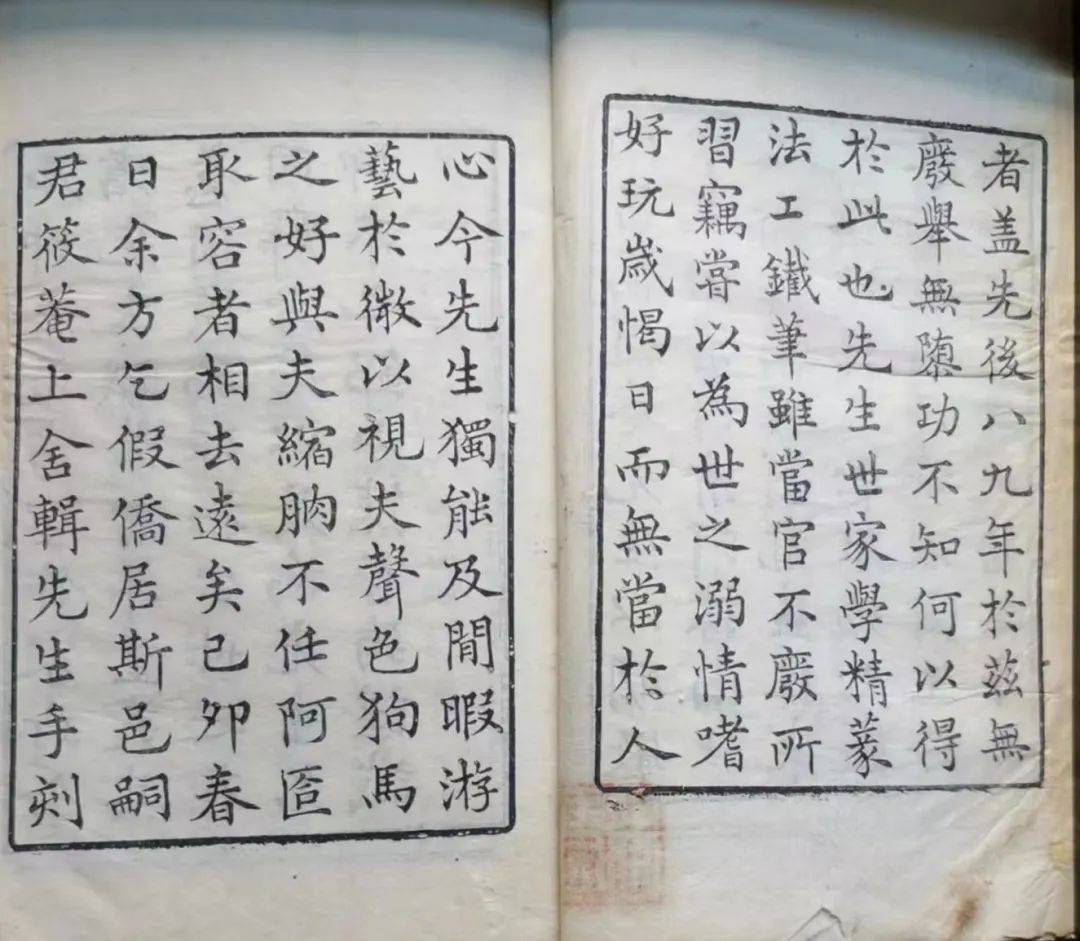 者盖先後八九年於茲無
廢舉無墮功不知何以得
於此也先生世家學精篆
法工鐵筆雖當官不廢所
習竊嘗以為世之溺情嗜
好玩歲愒日而無當於人
心今先生獨能及閒暇游
藝於微以視夫聲色狗馬
之好與夫縮朒不任阿匼
取容者相去遠矣己夘春
日余方乞假僑居斯邑嗣
君筱菴上舍輯先生手刻